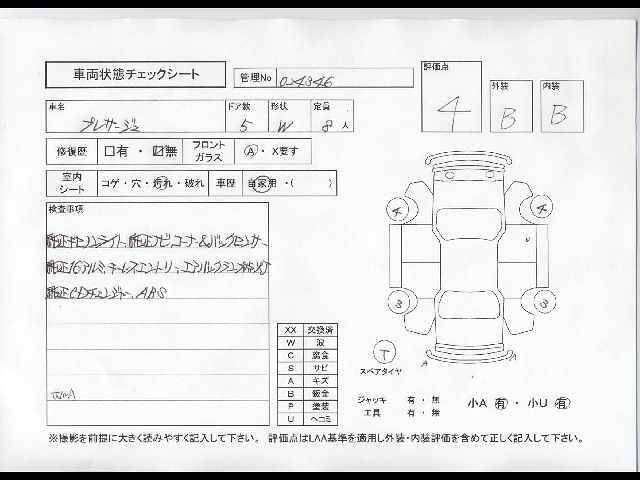 車両状態チェックシート
管理No 024346
評価点
4
外装
B
内装
B
車名
プレサージュ
ドア数
5
形状
W
定員
8 人
修復歴 口有 ・ 口無
フロント
ガラス
A ・ X要す
室内
シート
コゲ ・ 穴 ・ 汚れ ・ 破れ
車歴
自家用 ・ ( )
検査事項
純正キセノンライト、純正ナビ、コーナー&バックセンサー、
純正16アルミ、キーレスエントリー、
純正CDチェンジャー、ABS
XX 交換済
W 波
C 腐食
S サビ
A キズ
B 鈑金
P 塗装
U ヘコミ
4
4
3
3
T
スペアタイヤ
A
A
ジャッキ 有 ・ 無
工具 有 ・ 無
小A 有 ・ 小U 有
※撮影を前提に大きく読みやすく記入して下さい。 評価点はLAA基準を適用し外装・内装評価を含めて正しく記入して下さい。